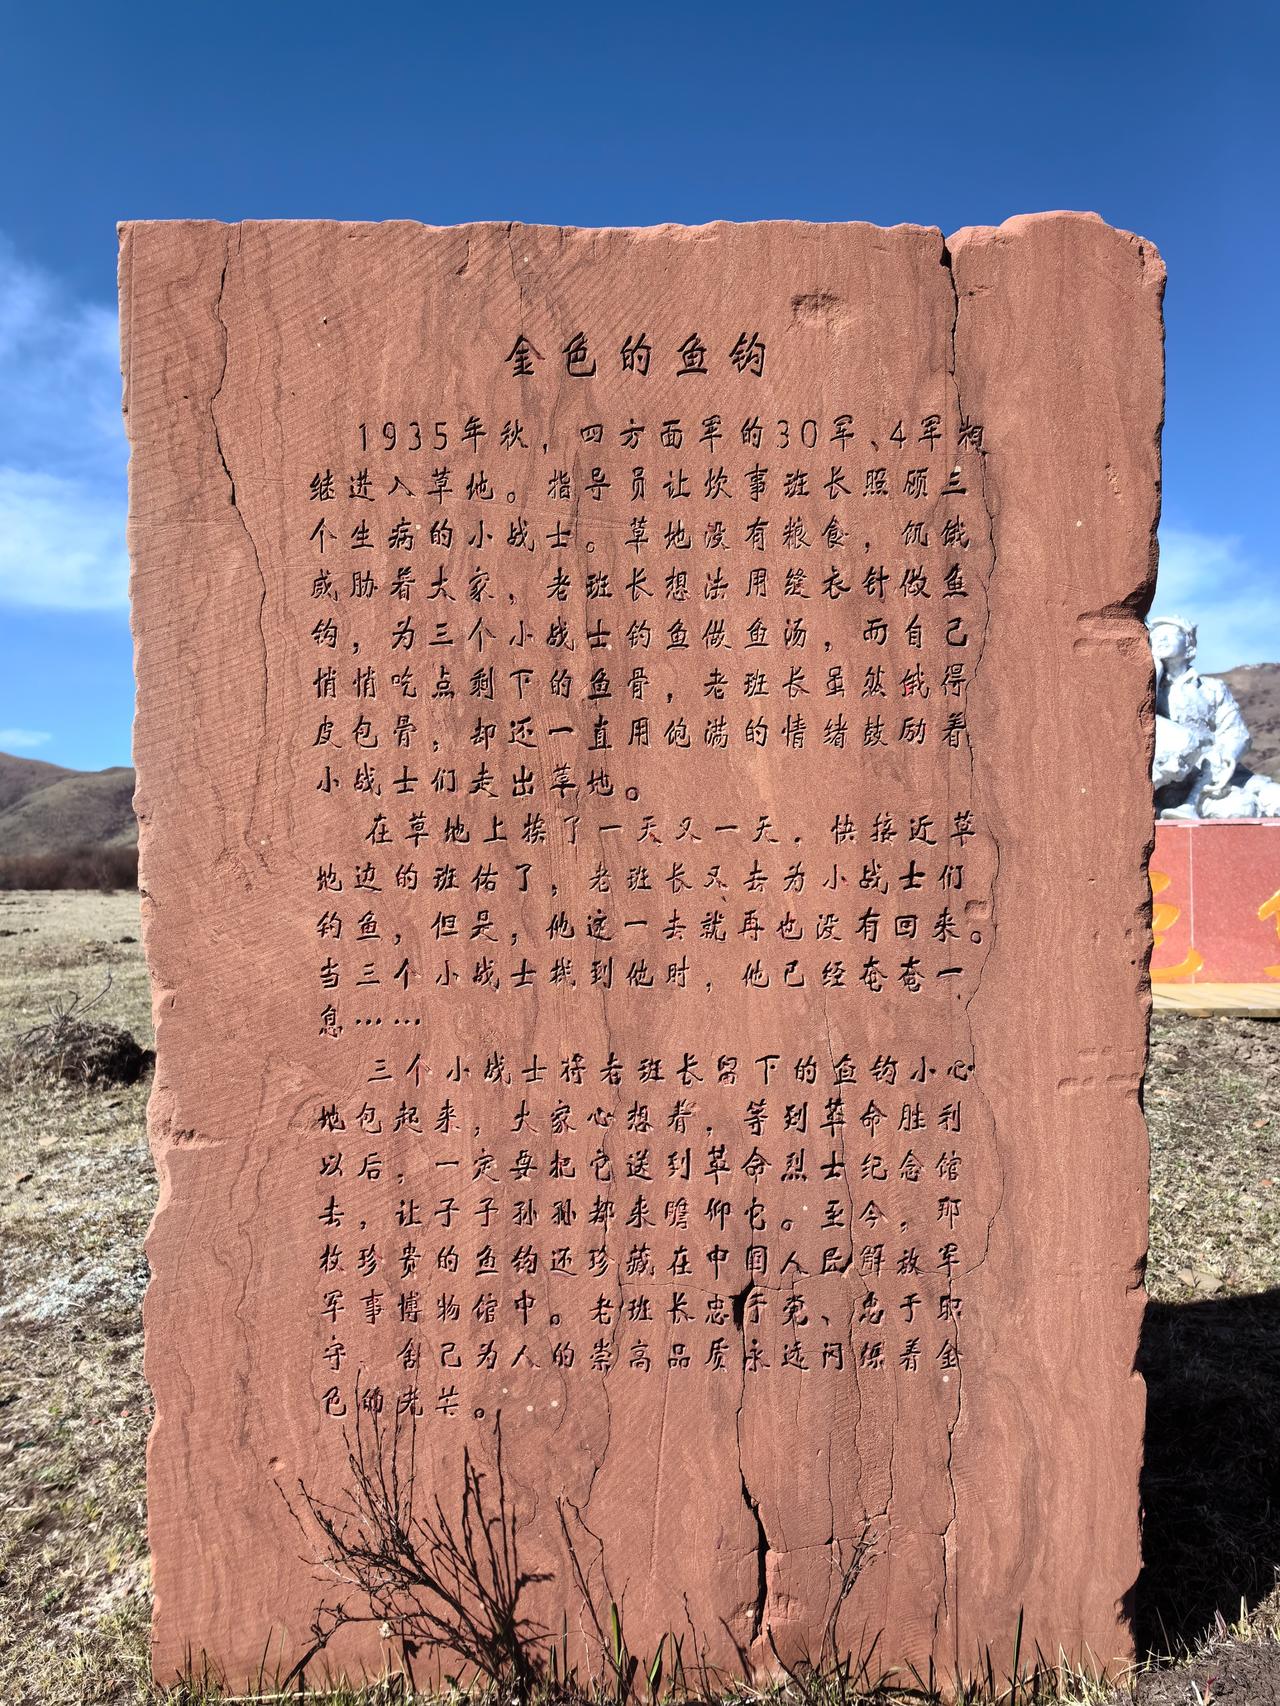 金色的鱼钩
1935年秋，四方面军的30军、4军相
继进入草地。指导员让炊事班长照顾三
个生病的小战士。草地没有粮食，饥饿
威胁着大家，老班长想法用缝衣针做鱼
钩，为三个小战士钓鱼做鱼汤，而自己
悄悄吃点剩下的鱼骨，老班长虽然饿得
皮包骨，却还一直用饱满的情绪鼓励着
小战士们走出草地。
在草地上挨了一天又一天，快接近草
地边的班佑了，老班长又去为小战士们
钓鱼，但是，他这一去就再也没有回来。
当三个小战士找到他时，他已经奄奄一
息……
三个小战士将老班长留下的鱼钩小心
地包起来，大家心想着，等到革命胜利
以后，一定要把它送到革命烈士纪念馆
去，让子子孙孙都来瞻仰它。至今，那
枚珍贵的鱼钩还珍藏在中国人民解放军
军事博物馆中。老班长忠于党、忠于职
守、舍己为人的崇高品质永远闪烁着金
色的光芒。